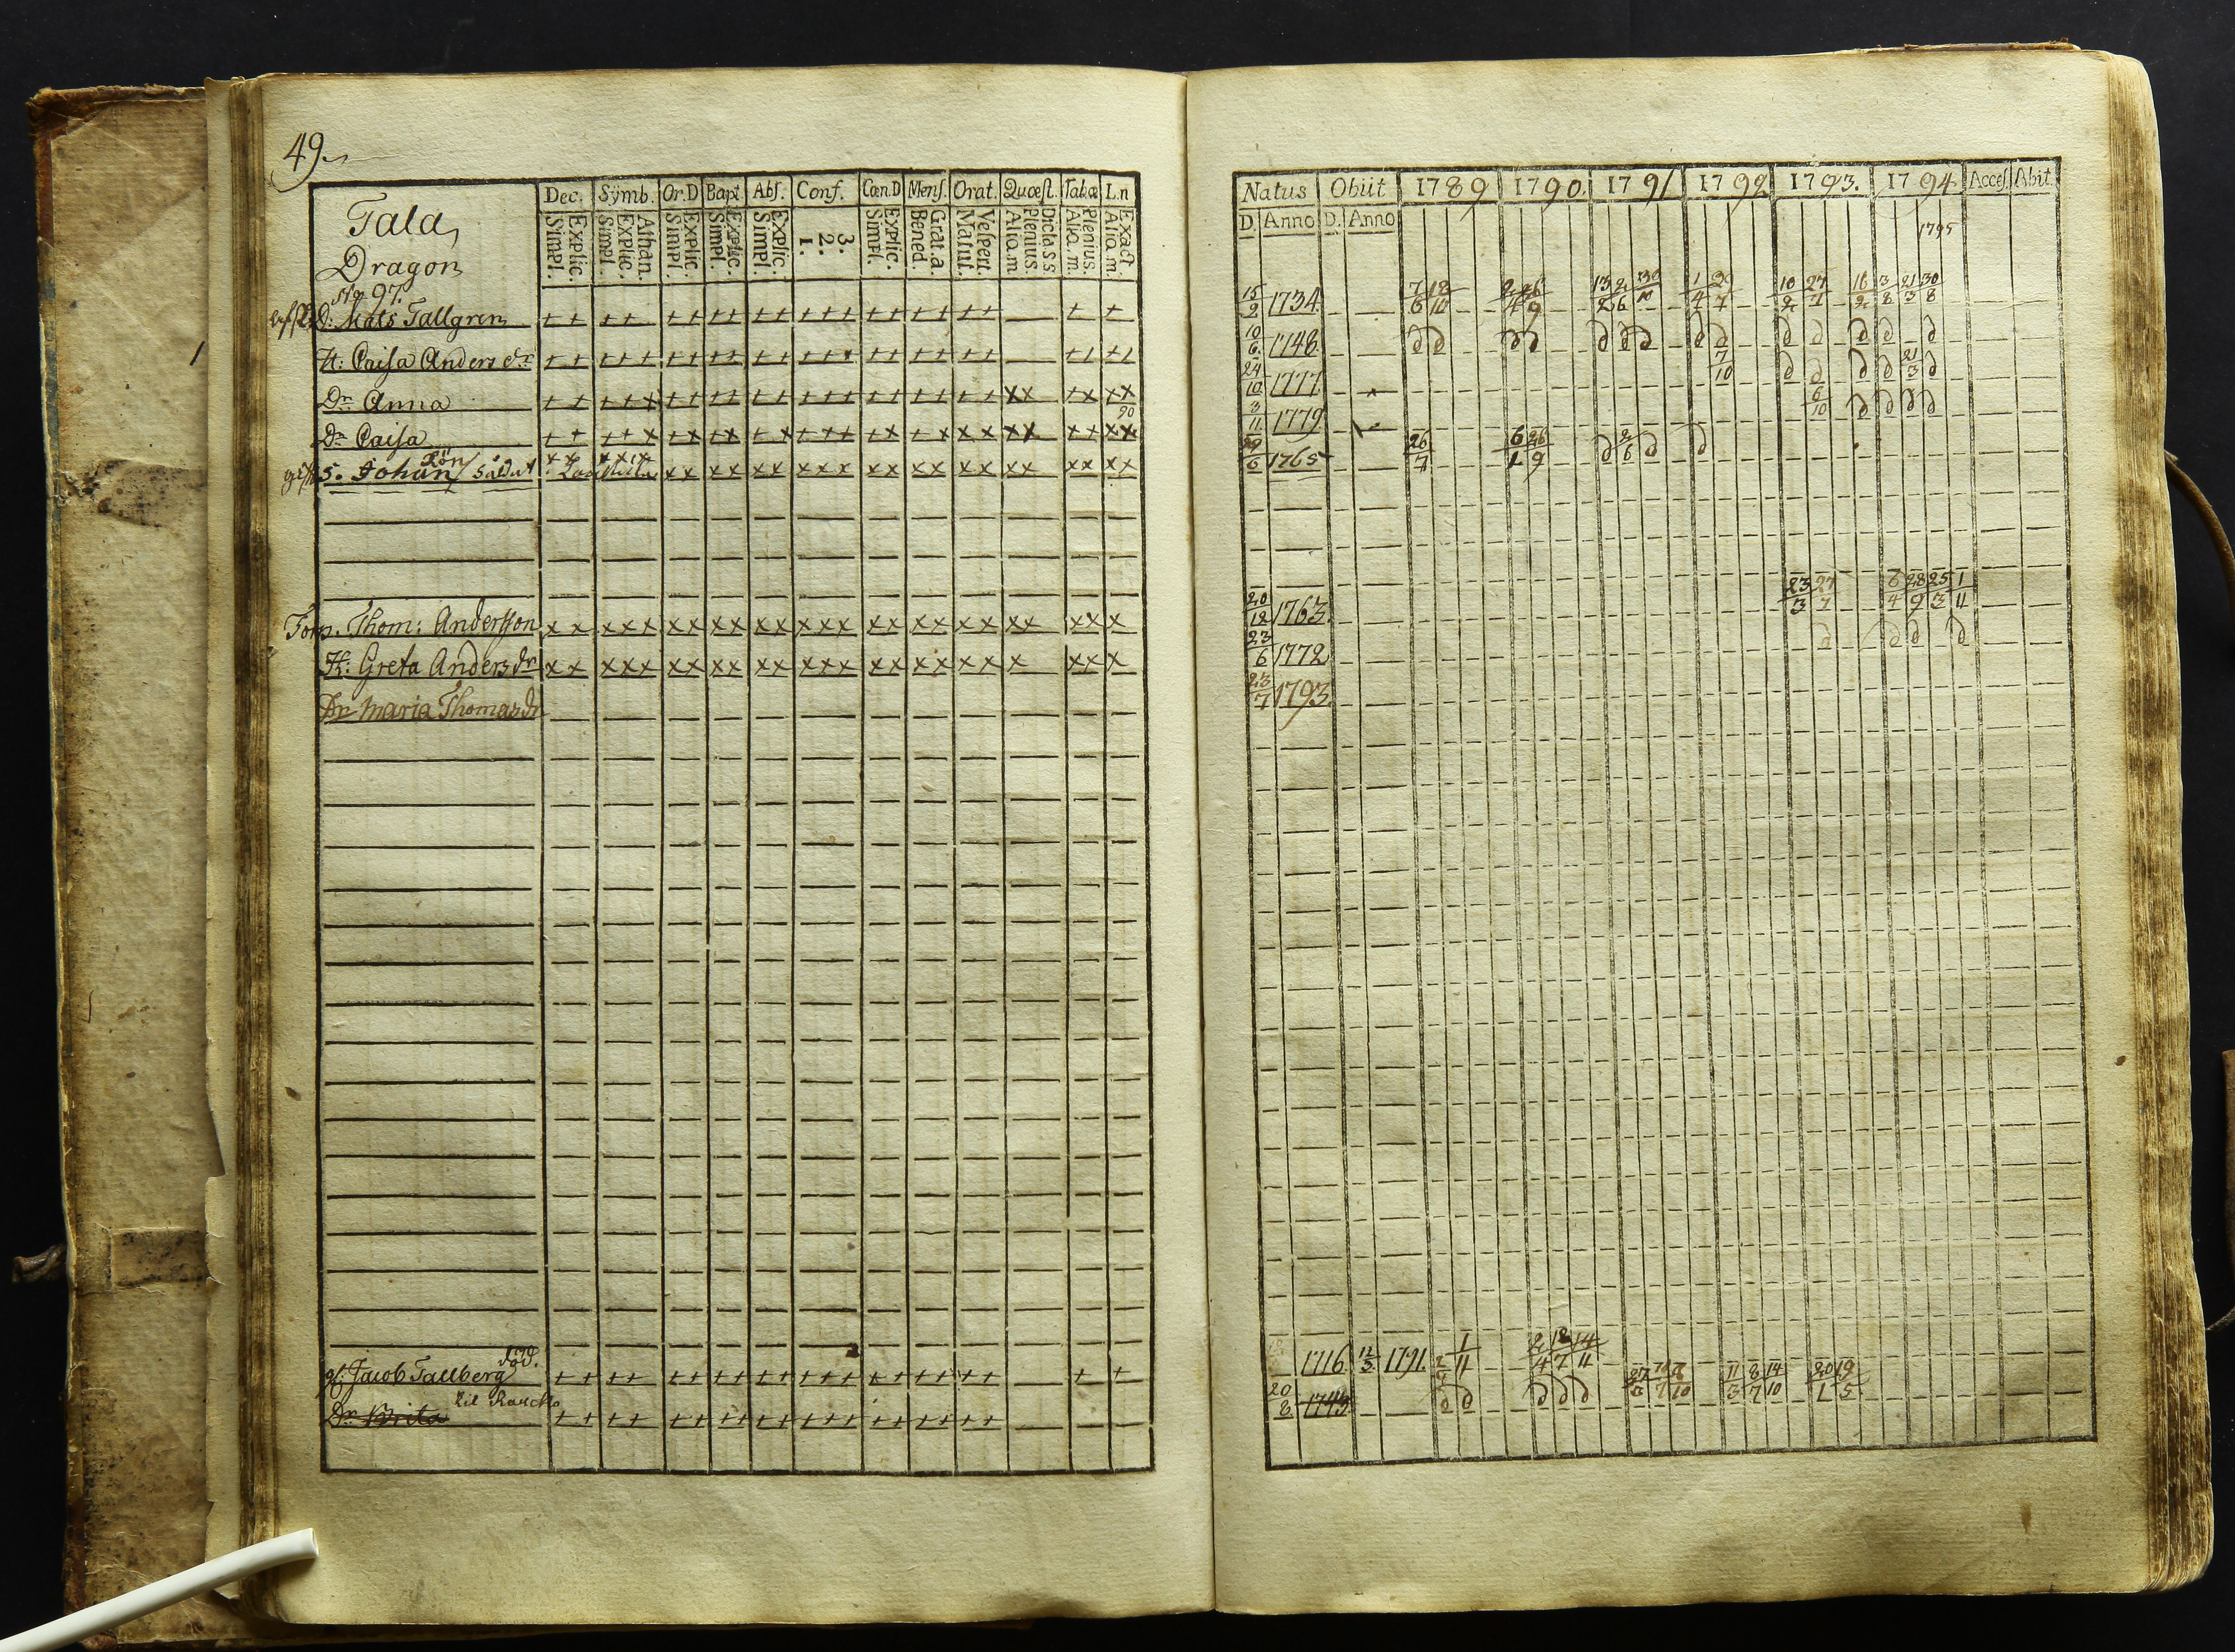 49.
Dec. Sÿmb. Or.D Bapt. Abs. Conf. Cœn.D Mens. Orat. Quœst. Tabæ L.n
Simpl. Explic. Simpl. Explic. Athan. Simpl. Explic. Simpl. Explic. Simpl. Explic. 1. 2. 3. Simpl. Explic. Bened. Grat.a. Matut. Vespert. Alia.m. Plenius. Dicta s s Alia.m. Plenius. Alia.m. Exact.
Tala,
Dragon
No 97.
D. Mats Tallgren
H: Caisa Anders dr
Dr Anna
Dr Caisa 90
S. Johan Rön / Saldat
Torp. Thom: Andersson
H: Greta Anders dr
Dr Maria Thomas dr
Jacob Tallberg död.
Dr Brita til Raucko
Natus Obiit 1789 1790. 1791 1792 1793. 1794 Acces. Abit.
D. Anno D. Anno
1795
15/2 1734. 7/6 18/10 2/4 26/9 13/2 2/6 30/10 1/4 29/7 10/2 27/7 16/2 3/8 21/3 30/8
10/6 1748
24/10 1777. 7/10 21/3
3/11 1779 6/10
29/6 1765 26/7 6/1 26/9 2/6
20/12 1763. 23/3 27/7 6/4 28/9 25/3 1/11
23/6 1772
23/7 1793.
1716. 12/3 1791. 1/11 2/4 18/7 14/11
20/8 1743. 11/3 8/7 14/10 20/1 19/5